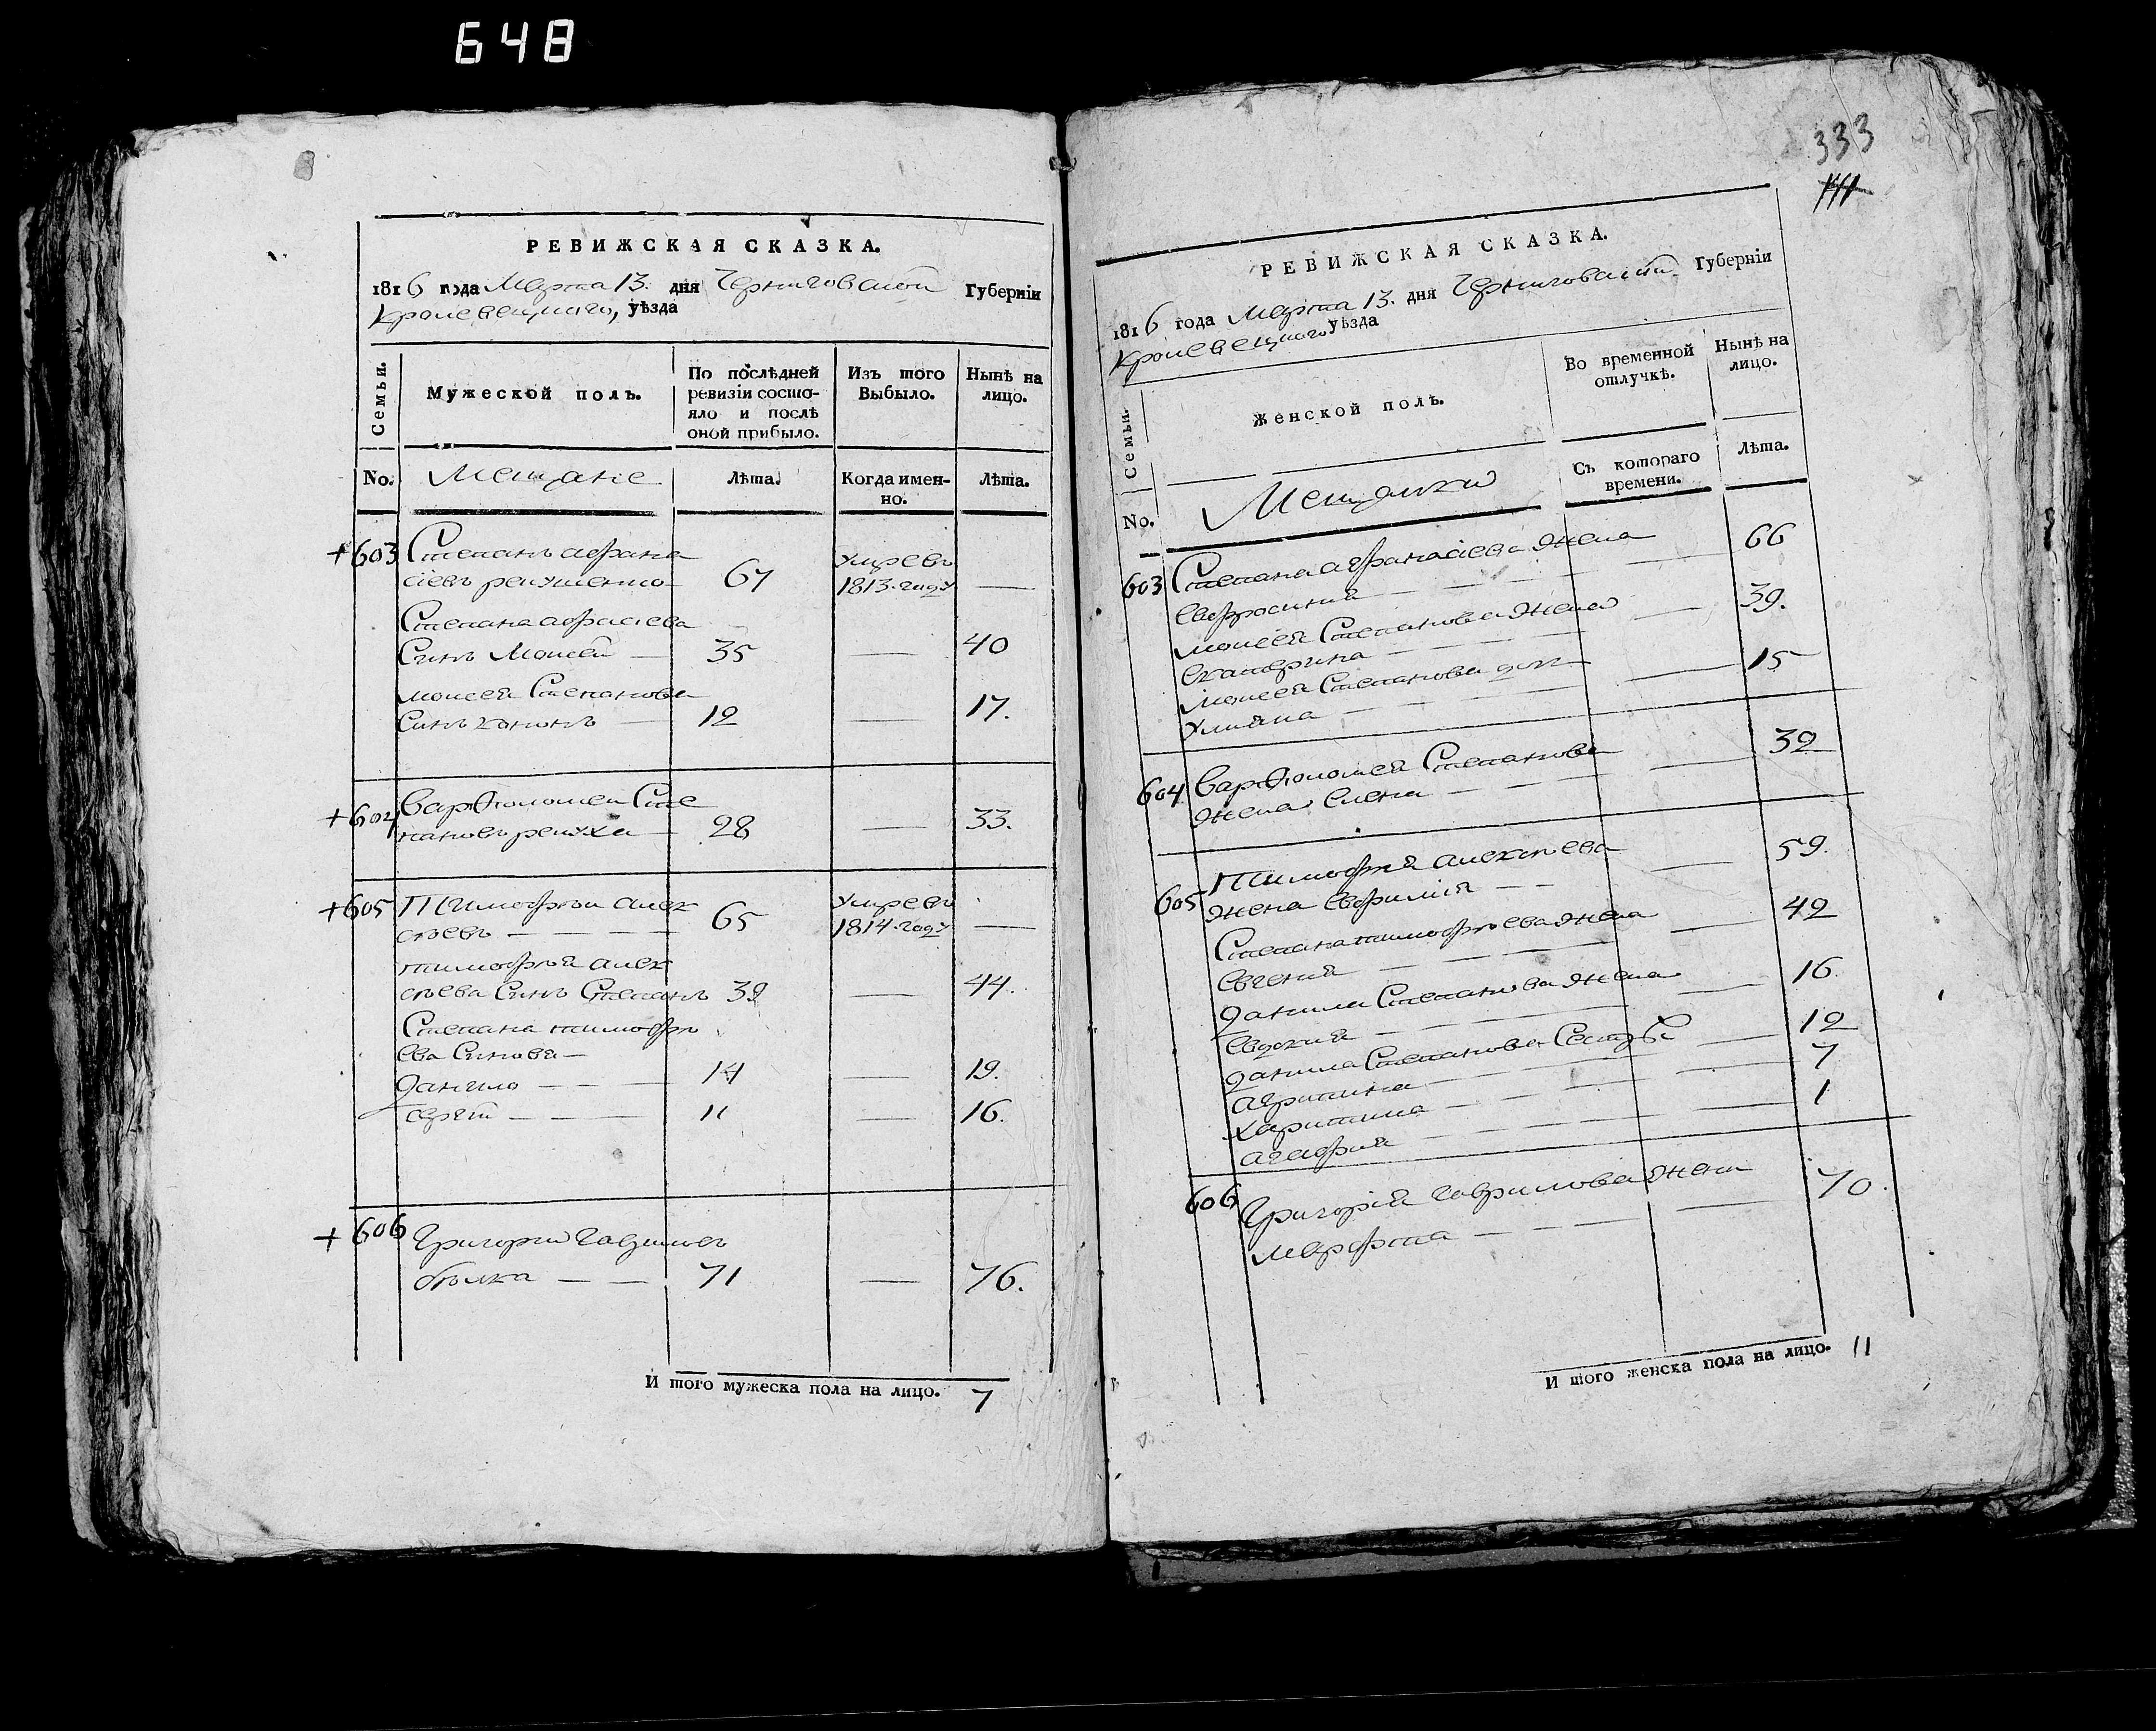 648
РЕВИЖСКАЯ СКАЗКА.
1816 года Марта 13. дня Черниговской Губерніи
Кролевецкого, уѣзда
Семьи.
Мужеской полъ.
По послѣдней
ревизіи состо-
яло и послѣ
оной прибыло.
Изъ того
Выбыло.
Нынѣ на
лицо.
No. Мещане Лѣта. Когда имен-
но. Лѣта.
+603 Степанъ афана
сіевъ 67 умре въ
1813. году —
Степана афанасіева
Синъ Моисей — 35 — 40
моисея Степанова
Синъ кононъ — 12 — 17.
+604 Варфоломей Сте
пановъ репуха — 28 — 33.
+605 Тимофѣй алек
сѣевъ — 65 умре въ
1814. году —
тимофѣя алек
сѣева Синъ Степанъ 39 — 44.
Степана тимофѣ
ева Синовя —
данило — 14 — 19.
сергѣй — 11 — 16.
+606 Григорий Гаврилов
бѣлка — 71 — 76.
И того мужеска пола на лицо. 7
333
РЕВИЖСКАЯ СКАЗКА.
1816 года Марта 13. дня Черниговской Губерніи
Кролевецкого уѣзда
Семьи.
Женской полъ.
Во временной
отлучкѣ.
Нынѣ на
лицо.
No. Мещанки
Съ котораго
времени.
Лѣта.
603 Степана афанасіева жена
евфросиния — 66
моисея Степанова жена
екатерина — 39.
моисея Степанова дочь
улияна — 15
604 Варфоломея Степанова
жена елена — 32
605 Тимофѣя алексѣева
жена евфимія — 59.
Степана тимофѣева жена
евгения — 42
данила Степанова жена
евдокия — 16.
данила Степанова Сестры
агрипина — 12
харитина — 7
агафия — 1
606 Григорія Гаврилова жена
марфта — 70.
И того женска пола на лицо. 11